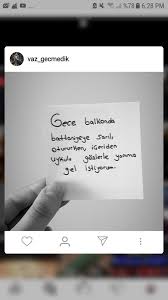 %78 6:28 PM
vaz_gecmedik
Gece balkonda
battaniyeye sarılı
otururken, içeriden
uykulu gözlerle yanıma
gel istiyorum.